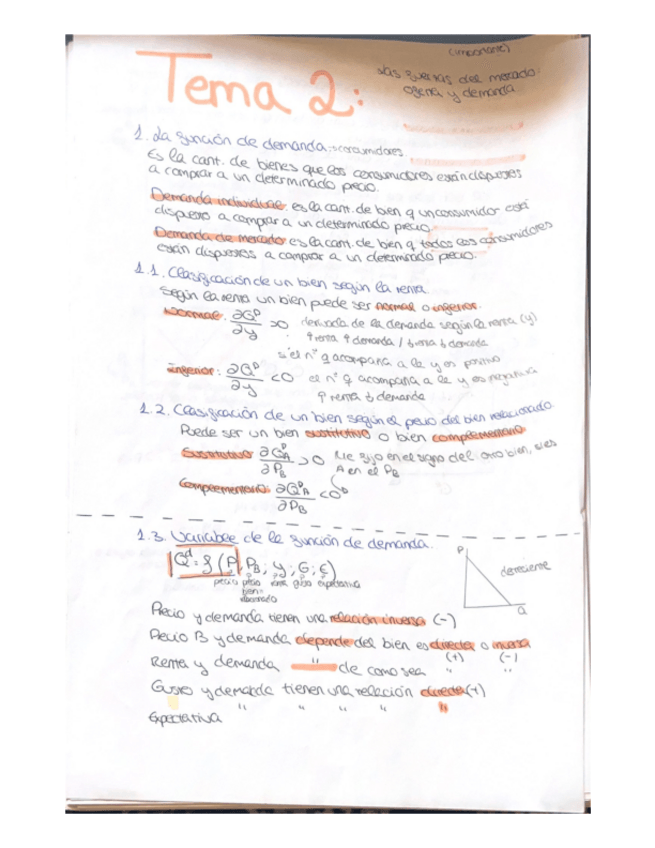 (importante)
Las fuerzas del mercado:
oferta y demanda
Tema 2:
1. La función de demanda: consumidores.
Es la cant. de bienes que los consumidores están dispuestos
a comprar a un determinado precio.
Demanda individual: es la cant. de bien q un consumidor está
dispuesto a comprar a un determinado precio
Demanda de mercado es la cant. de bien q todos los consumidores
están dispuestos a comprar a un determinado precio.
1.1. Clasificación de un bien según la renta
Según la renta un bien puede ser normal o inferior.
Normal: ∂Qᴰ/∂y >0 derivada de la demanda según la renta (y)
↑ renta ↑ demanda / ↓ renta ↓ demanda
si el nº q acompaña a la y es positivo
inferior: ∂Qᴰ/∂y <0 el nº q acompaña a la y es negativa
↑ renta ↓ demanda
1.2. Clasificación de un bien según el precio del bien relacionado.
Puede ser un bien sustitutivo o bien complementario
Sustitutivo ∂Qᴰ_A/∂P_B >0 Me fijo en el signo del otro bien, si es
A en el P_B
Complementario: ∂Qᴰ_A/∂P_B <0
1.3. Variable de la función de demanda.
Qᵈ = f (P, P_B; y; G; E)
precio precio renta gusto expectativa
bien
P
decreciente
Q
Precio y demanda tienen una relación inversa (-)
Precio B y demanda depende del bien es directa o inversa
(+) (-)
Renta y demanda " de como sea " "
Gusto y demanda tienen una relación directa (+)
Expectativa " " " " "